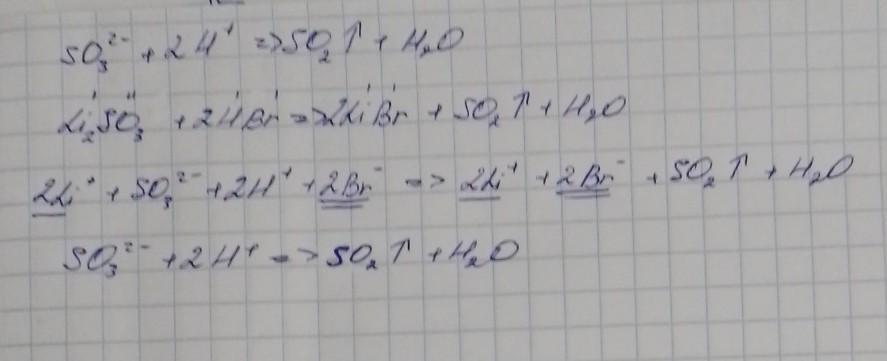 SO₃²⁻ + 2H⁺ => SO₂↑ + H₂O
Li₂SO₃ + 2HBr => 2LiBr + SO₂↑ + H₂O
2Li⁺ + SO₃²⁻ + 2H⁺ + 2Br⁻ => 2Li⁺ + 2Br⁻ + SO₂↑ + H₂O
SO₃²⁻ + 2H⁺ => SO₂↑ + H₂O